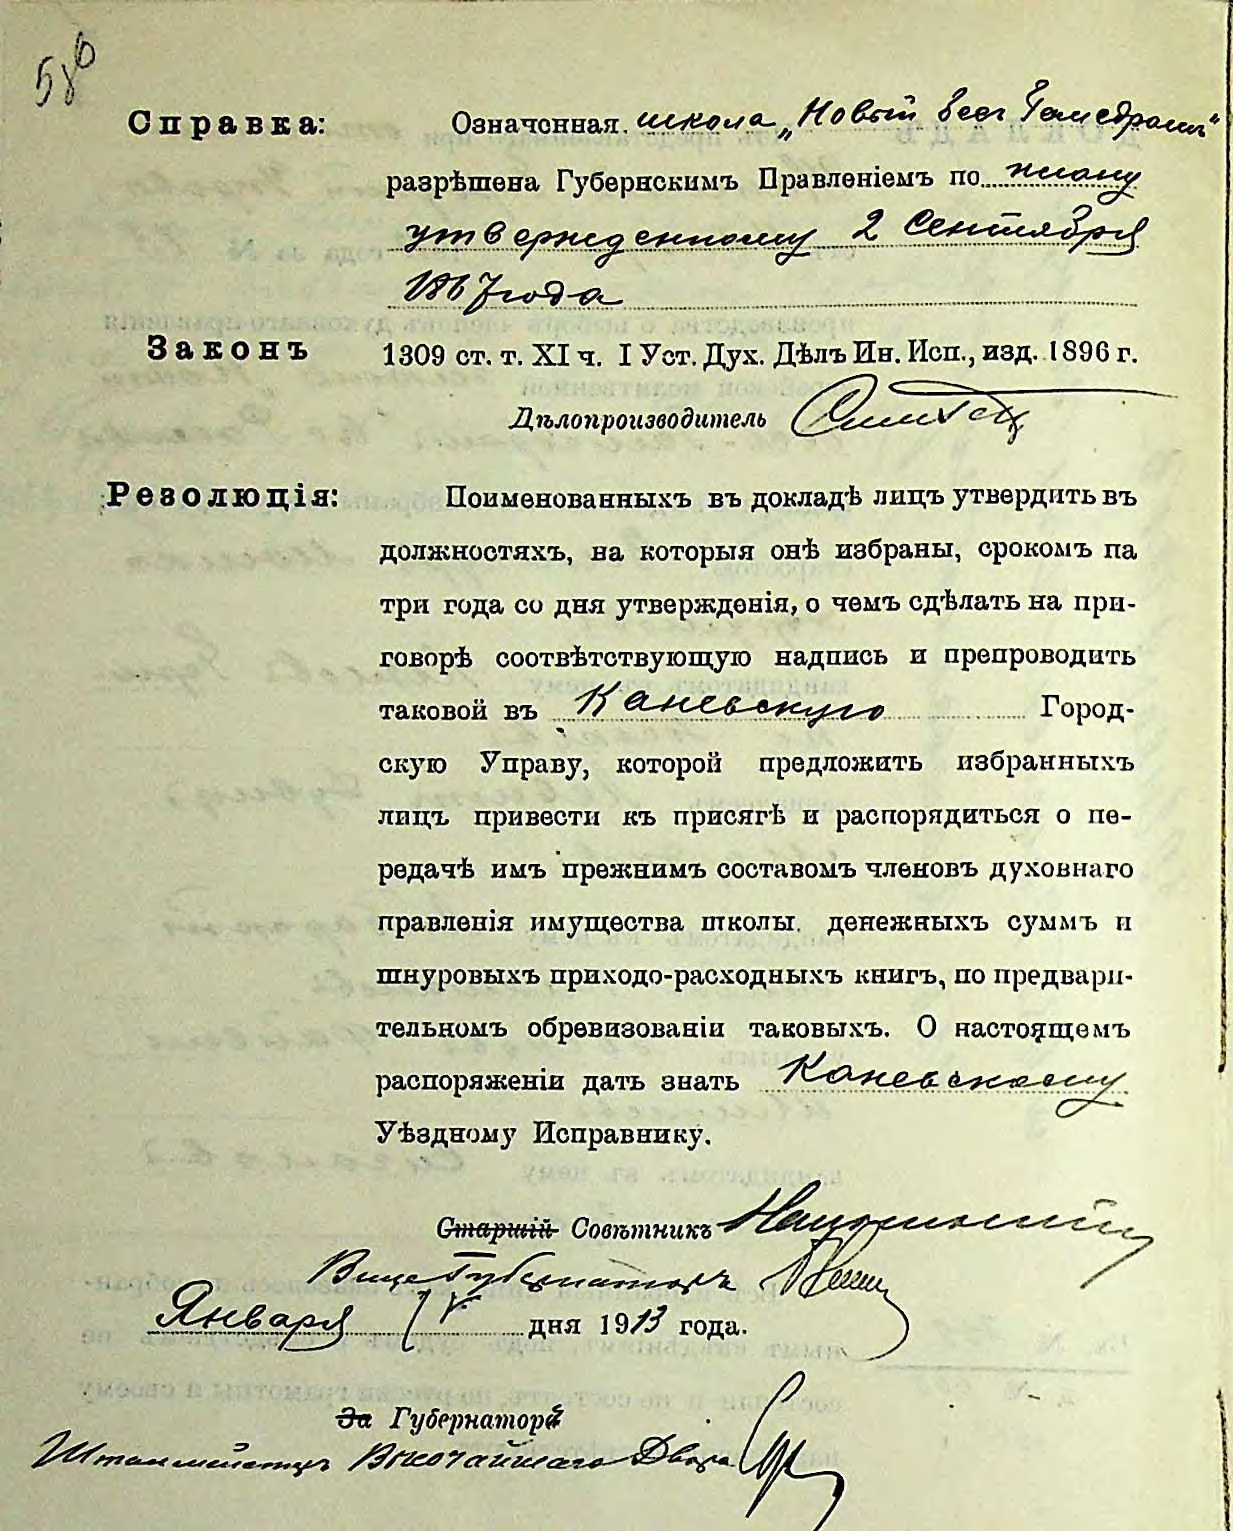 586
Справка: Означенная школа „Новый Бес Гамедраш"
разрѣшена Губернскимъ Правленіемъ по плану
утвержденному 2 Сентября
1867 года
Законъ 1309 ст. т. XI ч. I Уст. Дух. Дѣлъ Ин. Исп., изд. 1896 г.
Дѣлопроизводитель
Резолюція: Поименованныхъ въ докладѣ лицъ утвердить въ
должностяхъ, на которыя онѣ избраны, срокомъ на
три года со дня утвержденія, о чемъ сдѣлать на при-
говорѣ соотвѣтствующую надпись и препроводить
таковой въ Каневскую Город-
скую Управу, которой предложить избранныхъ
лицъ привести къ присягѣ и распорядиться о пе-
редачѣ имъ прежнимъ составомъ членовъ духовнаго
правленія имущества школы, денежныхъ суммъ и
шнуровыхъ приходо-расходныхъ книгъ, по предвари-
тельномъ обревизованіи таковыхъ. О настоящемъ
распоряженіи дать знать Каневскому
Уѣздному Исправнику.
Старшій Совѣтникъ
Вице Губернаторъ
Января дня 1913 года.
За Губернаторъ
Шталмейстеръ Высочайшаго Двора